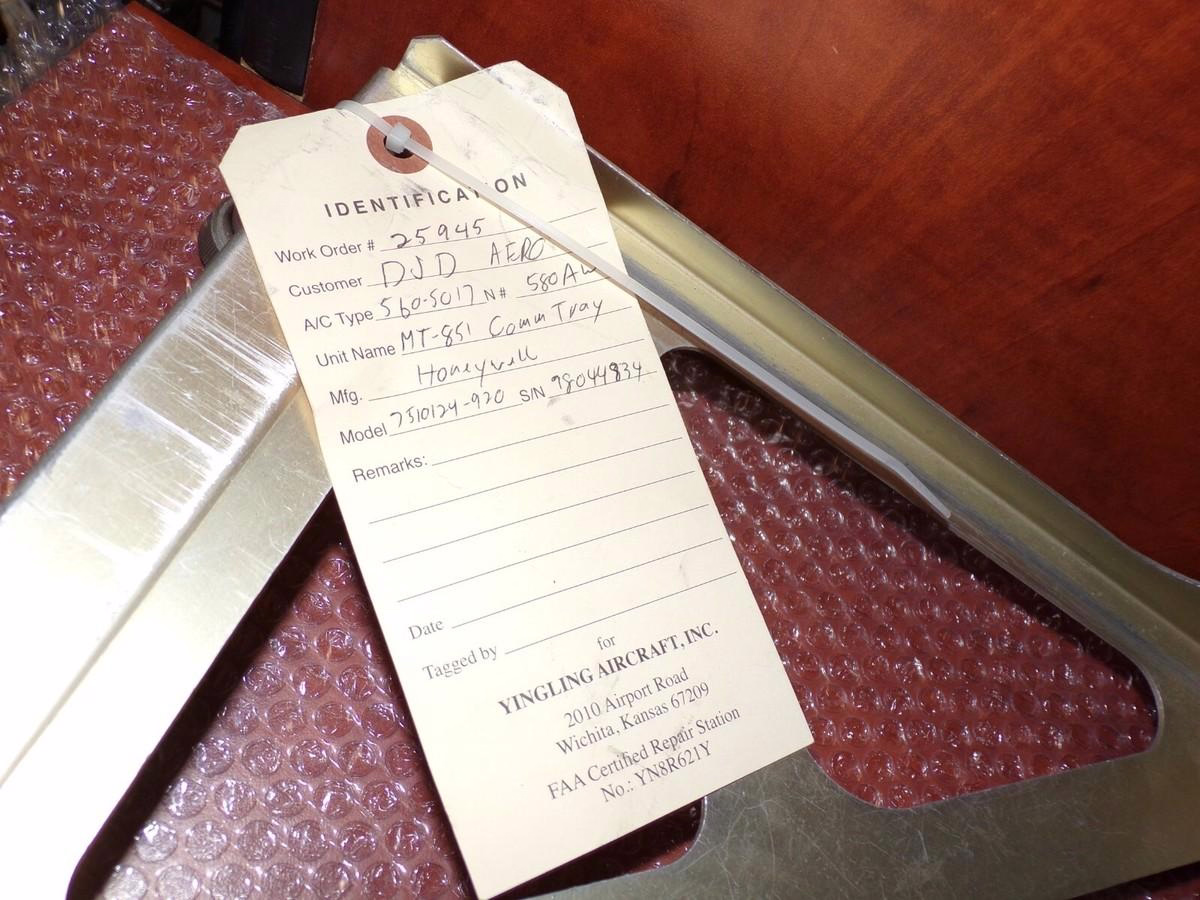 IDENTIFICATION
Work Order # 25945
Customer DJD AERO
A/C Type 560-5017 N# 580AW
Unit Name MT-851 Comm Tray
Mfg. Honeywell
Model 7510124-920 S/N 98044834
Remarks:
Date
Tagged by
for
YINGLING AIRCRAFT, INC.
2010 Airport Road
Wichita, Kansas 67209
FAA Certified Repair Station
No.: YN8R621Y